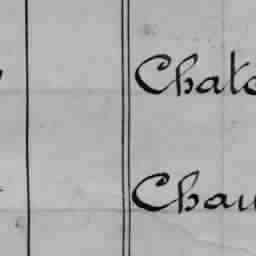 Chate
Chau